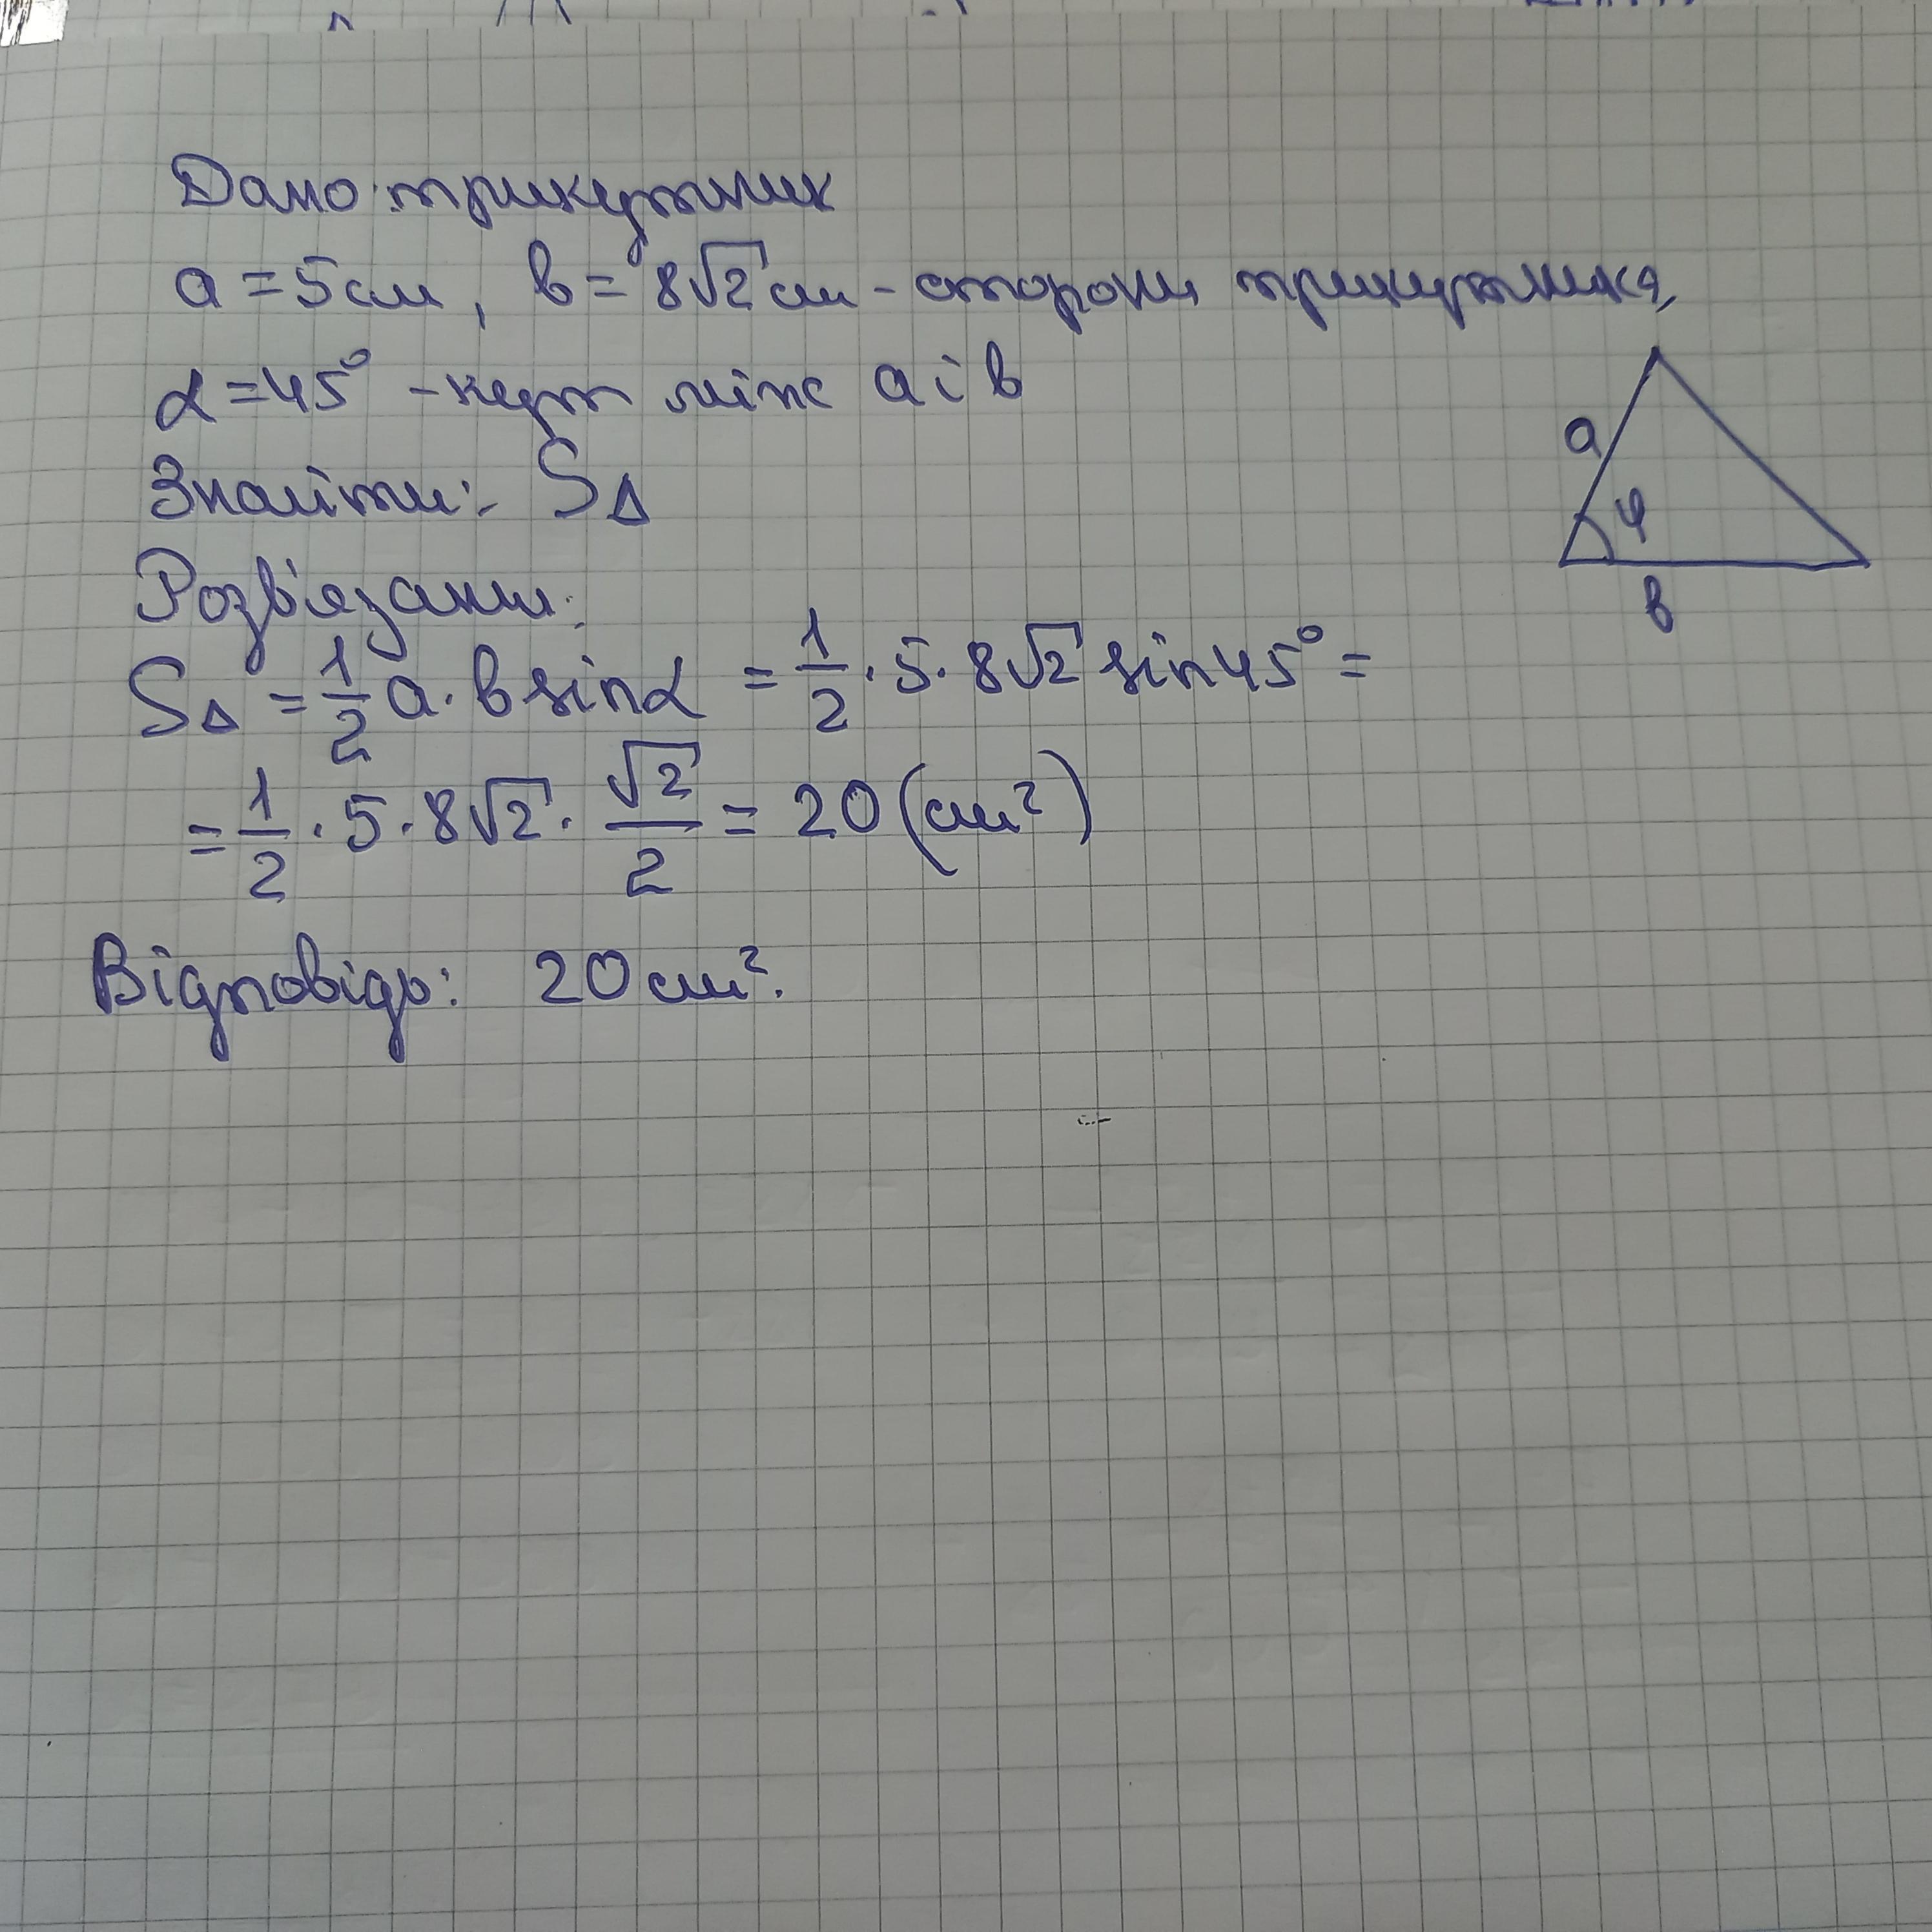 Дано: трикутник
a = 5 см, b = 8√2 см - сторони трикутника,
α = 45° - кут між a і b
Знайти: S△
a
φ
b
Розв'язання:
S△ = 1/2 a · b sin α = 1/2 · 5 · 8√2 sin 45° =
= 1/2 · 5 · 8√2 · √2/2 = 20 (см²)
Відповідь: 20 см².